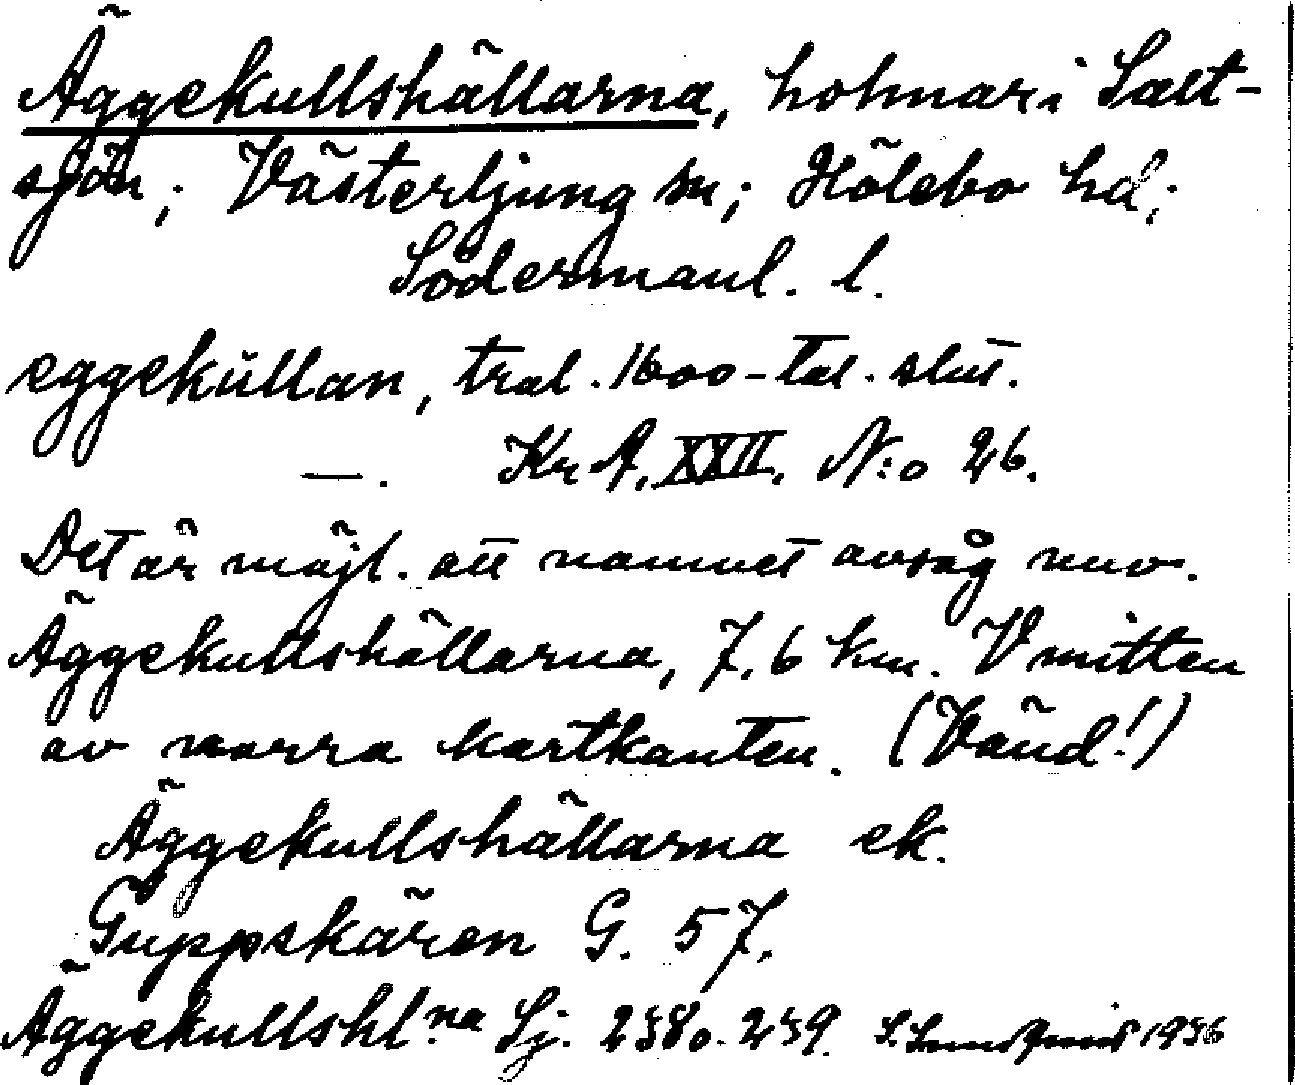 Äggekullshällarna, holmar i Salt-
sjön; Västerljung sn; Hölebo hd;
Södermanl. l.
eggekŭllan, trol. 1600-tal. slut.
—. Kr A. XXII. N:o 26.
Det är möjl. att namnet avsåg nuv.
Äggekullshällarna, 7,6 km. V mitten
av norra kartkanten. (Vänd!)
Äggekullshällarna ek.
Guppskären G. 57.
Äggekullshl.na Sj. 258 o. 259. 1956